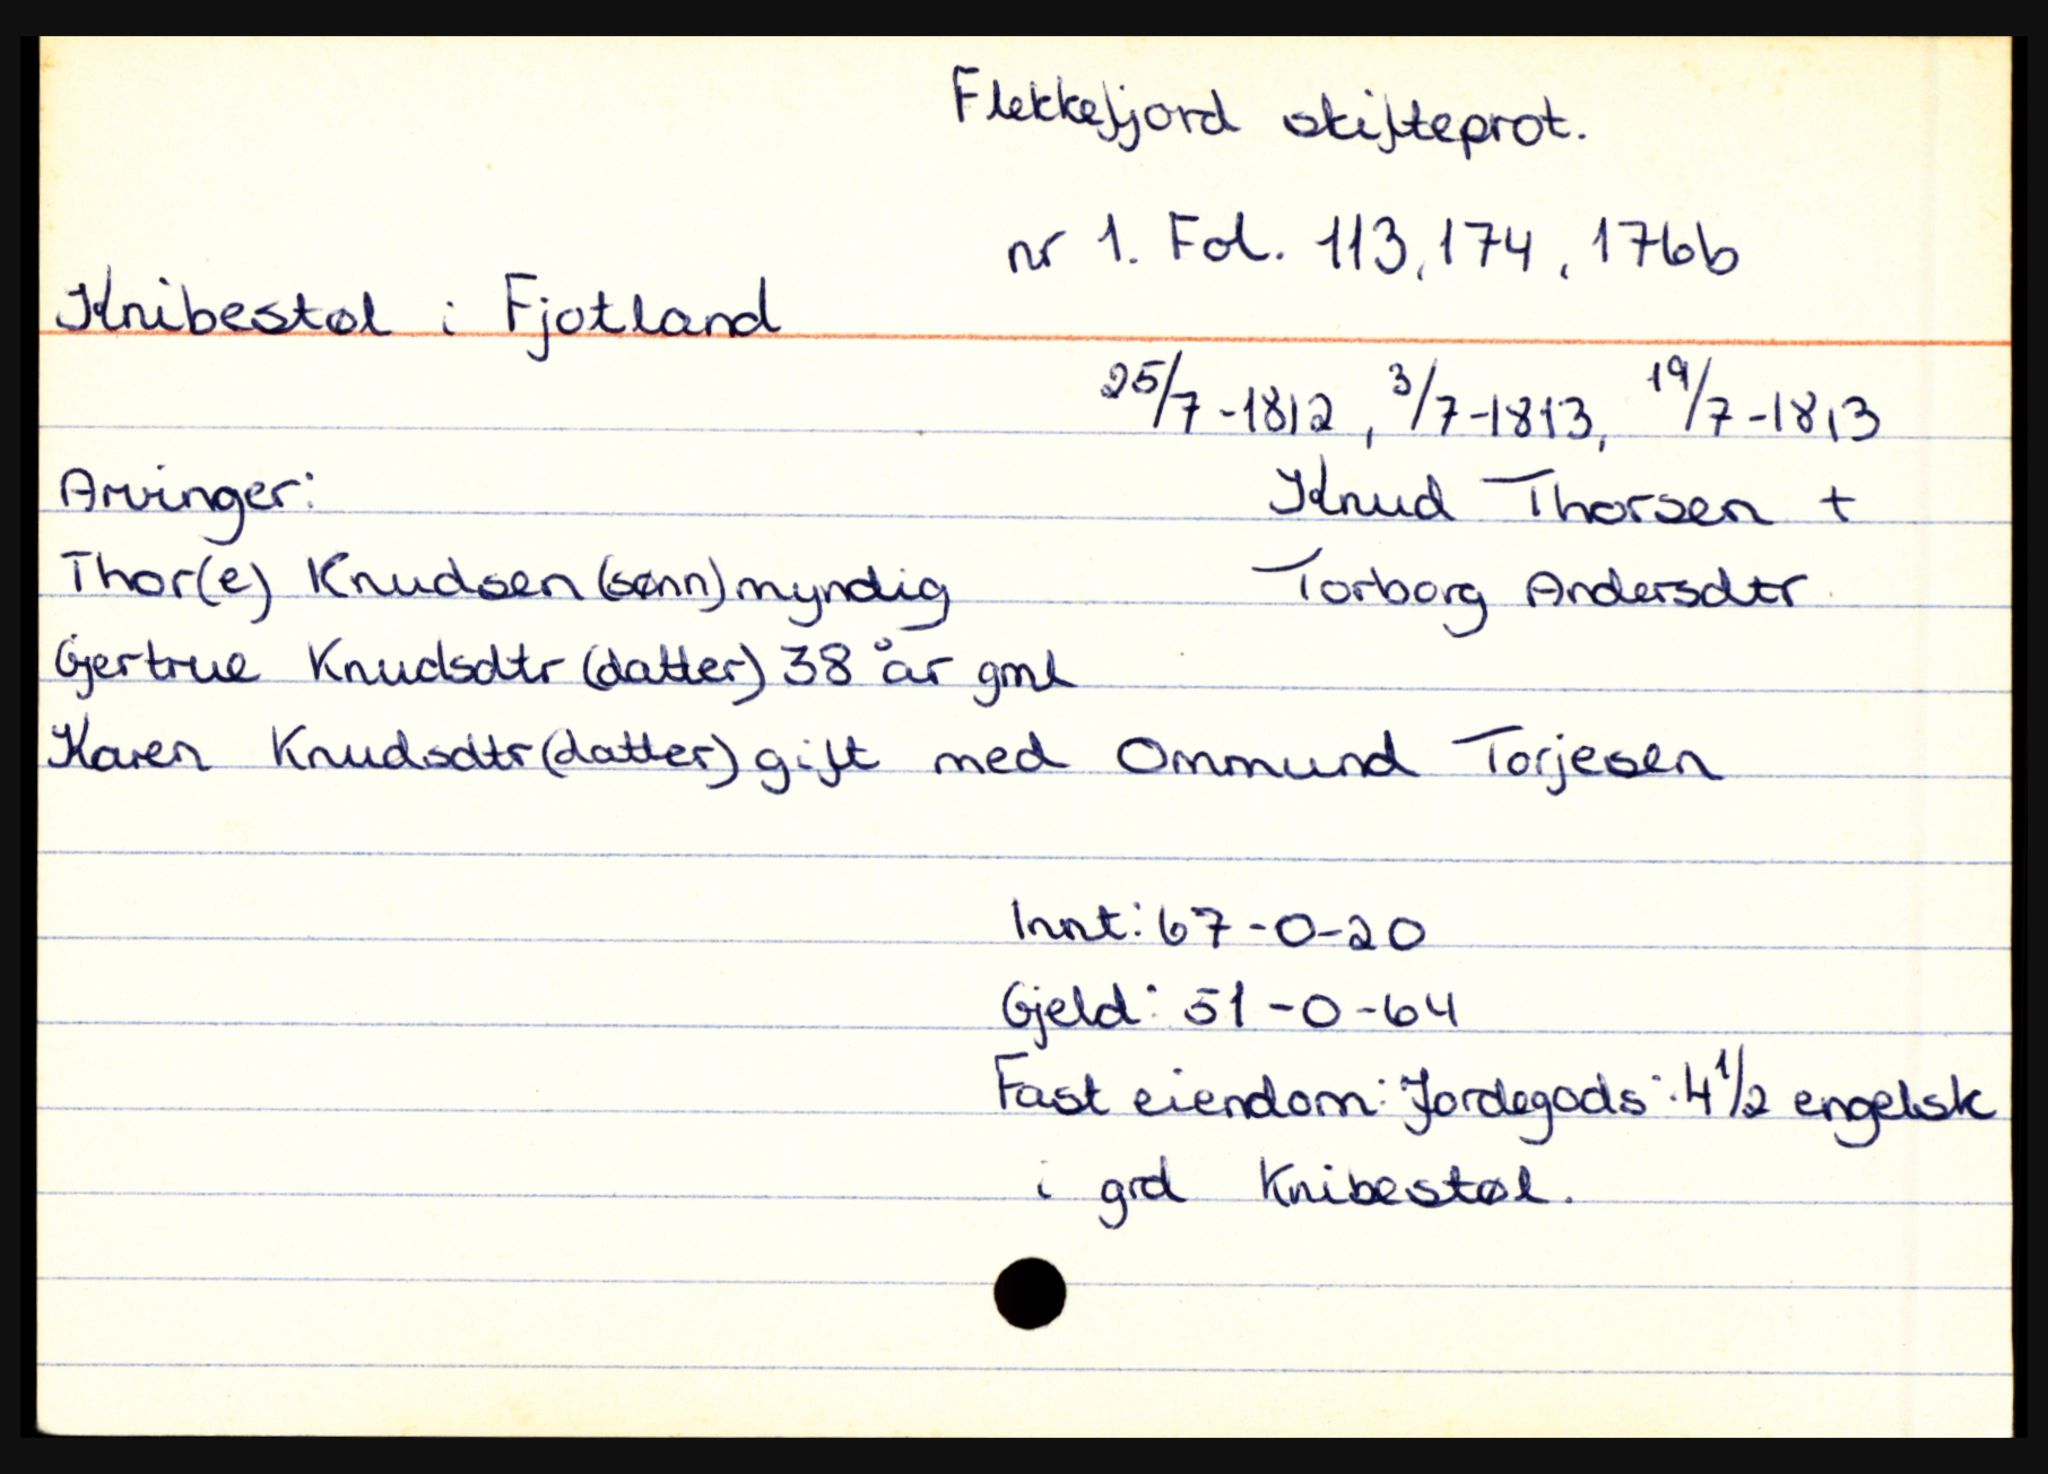 Flekkefjord skifteprot.
nr 1. Fol. 113, 174, 176b
Knibestøl i Fjotland
25/7-1812, 3/7-1813, 19/7-1813
Arvinger:
Knud Thorsen +
Thor(e) Knudsen (sønn) myndig
Torborg Andersdtr
Gjertrue Knudsdtr (datter) 38 år gml
Karen Knudsdtr (datter) gift med Ommund Torjesen
Innt: 67-0-20
Gjeld: 51-0-64
Fast eiendom: Jordegods: 4 1/2 engelsk
i grd Knibestøl.